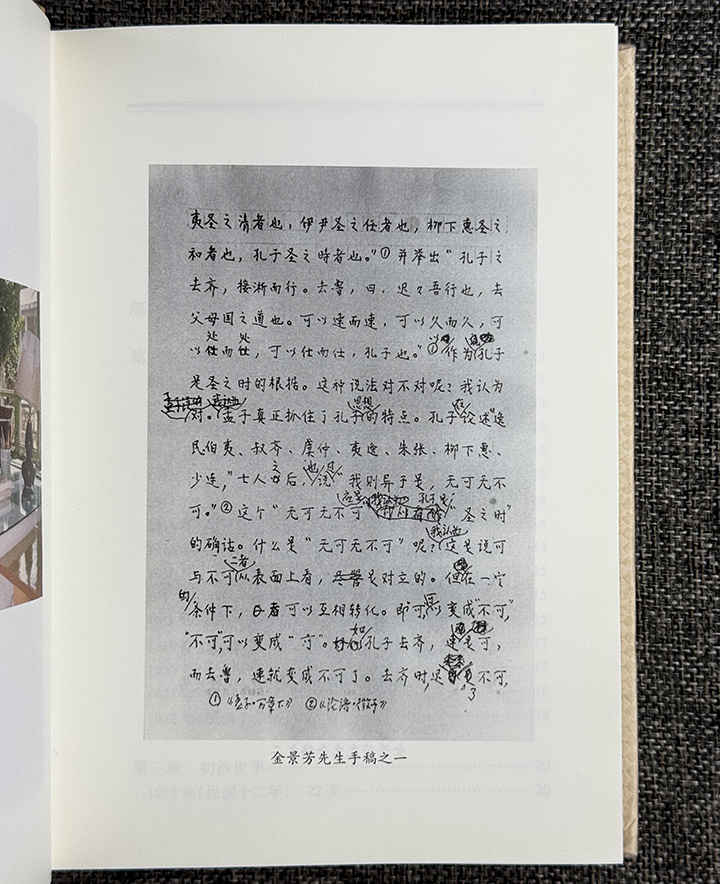 夷圣之清者也，伊尹圣之任者也，柳下惠圣之
和者也，孔子圣之時者也。”① 并举出“孔子之
去齐，接淅而行。去魯，曰，迟々吾行也，去
父母国之道也。可以速而速，可以久而久，可
以处而处，可以仕而仕，孔子也。”① 作为孔子
是圣之时的根据。这种说法对不对呢？我认为
对。孟子真正抓住了孔子思想的特点。孔子在论述“逸
民伯夷、叔齐、虞仲、夷逸、朱张、柳下惠、
少连，”七人之后，他说“我则异于是，无可无不
可。”② 这个“无可无不可”“圣之时”
的确诂。什么是“无可无不可”呢？我认为这是说可
与不可二者从表面上看，是对立的。但在一定
的条件下，二者可以互相转化。即“可”可以变成“不可”，
“不可”可以变成“可”。如孔子去齐，速是可，
而去鲁，速就变成不可了。去齐时，迟是不可，
①《孟子·万章下》 ②《论语·微子》
金景芳先生手稿之一
第三章 初涉世事 20
1923年（民国十二年） 22岁 20